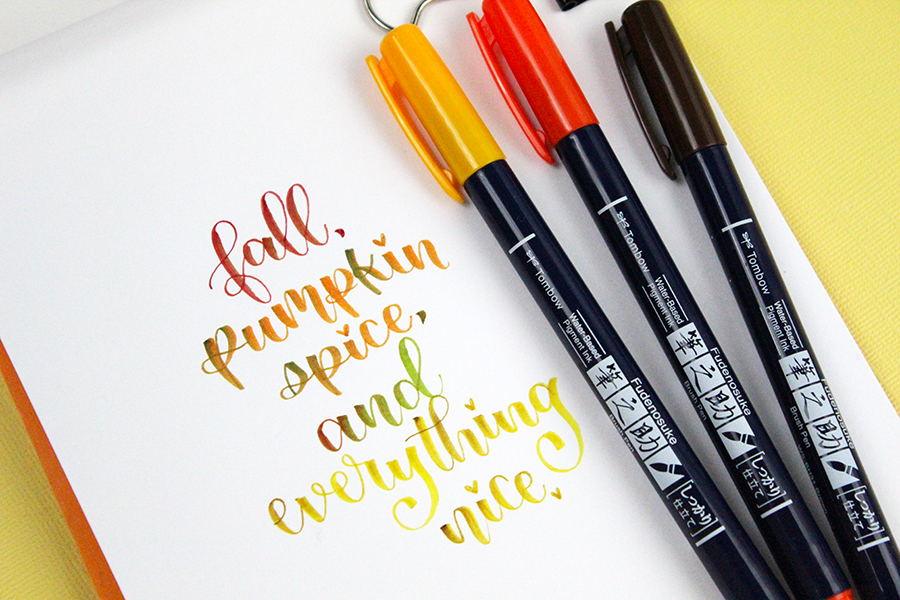 fall,
pumpkin
spice,
and
everything
nice.
Tombow
Water-Based
Pigment Ink
筆之助
Fudenosuke
しっかり
仕立て
Tombow
Water-Based
Pigment Ink
筆之助
Fudenosuke
Brush Pen
しっかり
仕立て
Tombow
Water-Based
Pigment Ink
筆之助
Fudenosuke
Brush Pen
しっかり
仕立て